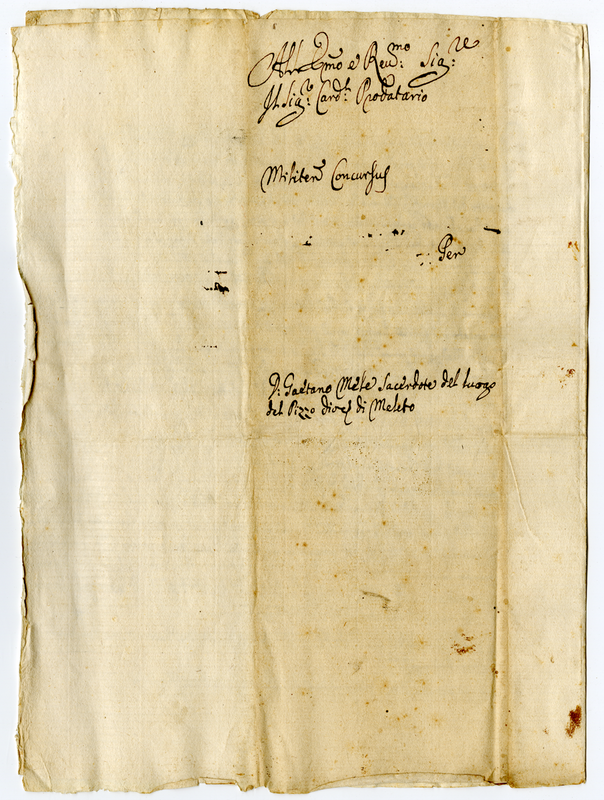 All' Emo e Reu:mo Sig:re
Il Sig:r Card:l Prodatario
Militen Concursus
Per
D: Gaetano Mele Sacerdote del luogo
del Pizzo dioc di Meleto